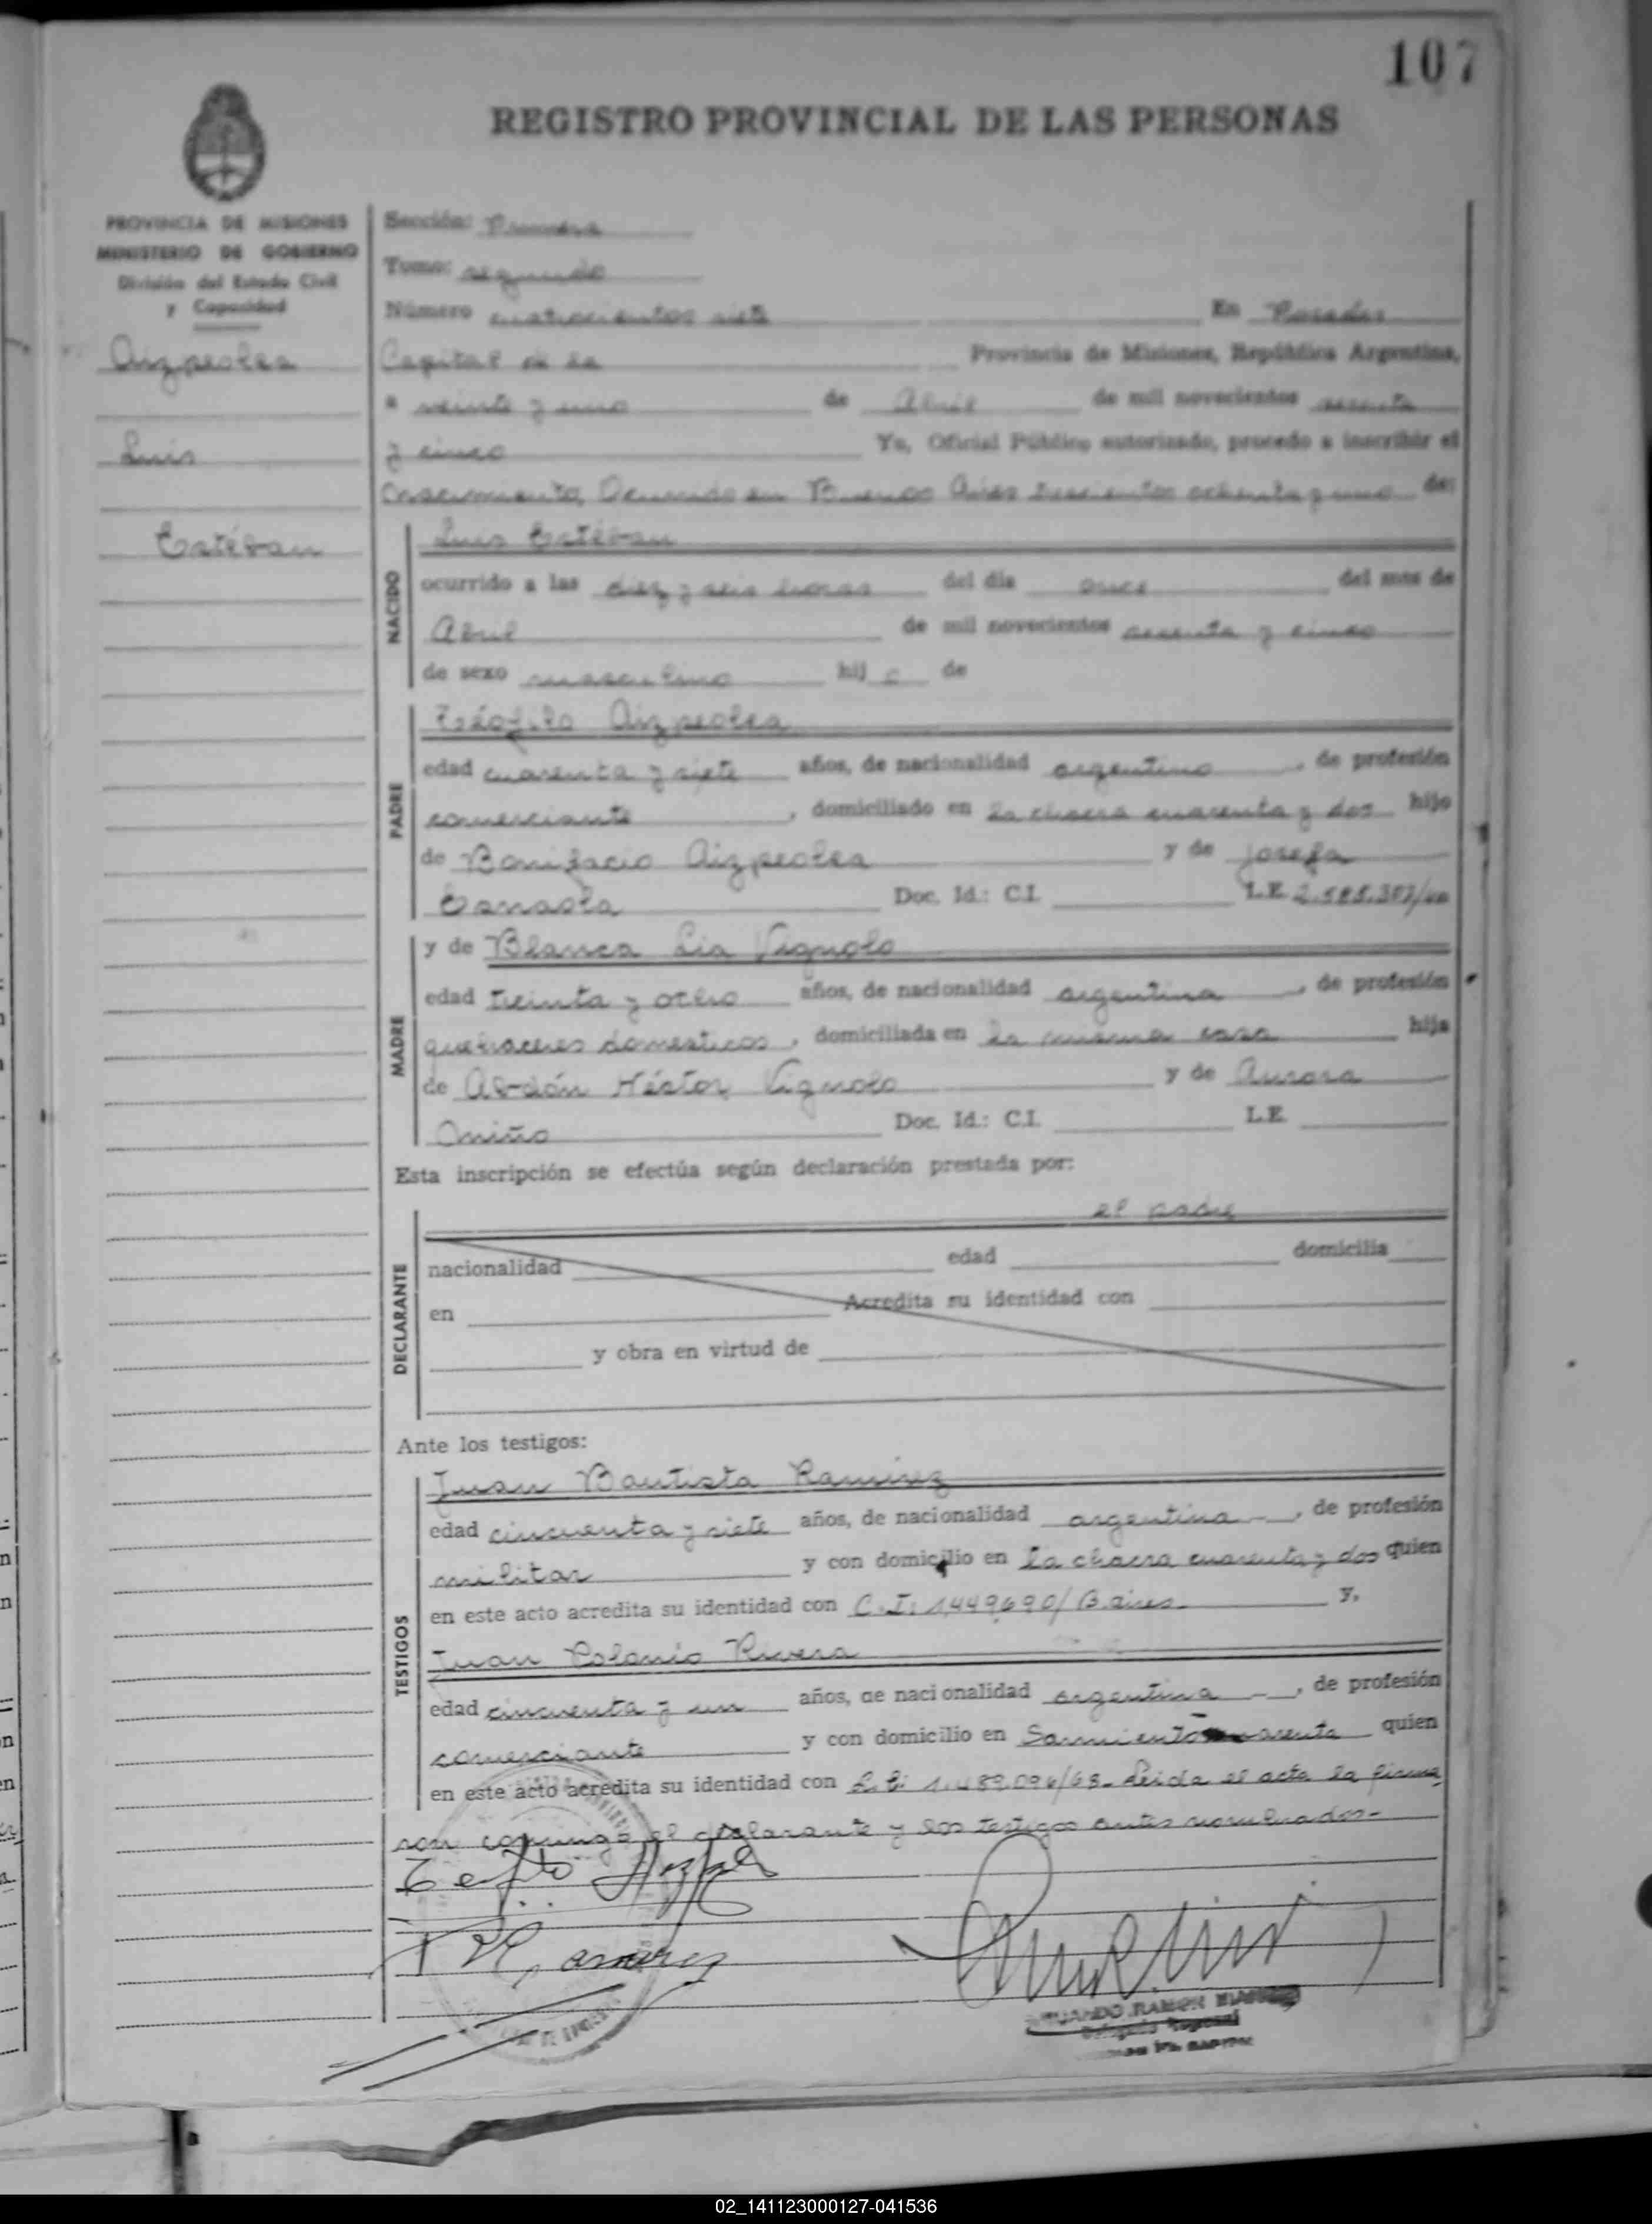 107
REGISTRO PROVINCIAL DE LAS PERSONAS
PROVINCIA DE MISIONES
MINISTERIO DE GOBIERNO
División del Estado Civil
y Capacidad
Aizpeolea
Luis
Estéban
Sección: Primera
Tomo: segundo
Número cuatrocientos siete En Posadas
Capital de la Provincia de Misiones, República Argentina,
a veinte y uno de Abril de mil novecientos sesenta
y cinco Yo, Oficial Público autorizado, procedo a inscribir el
nacimiento, Ocurrido en Buenos Aires trescientos ochenta y uno de:
NACIDO
Luis Estéban
ocurrido a las diez y seis horas del día once del mes de
Abril de mil novecientos sesenta y cinco
de sexo masculino hij o de
PADRE
Teófilo Aizpeolea
edad cuarenta y siete años, de nacionalidad argentino, de profesión
comerciante, domiciliado en la chacra cuarenta y dos hijo
de Bonifacio Aizpeolea y de Josefa
Doc. Id.: C.I. L.E.
MADRE
y de Blanca Lia Vignolo
edad treinta y ocho años, de nacionalidad argentina, de profesión
quehaceres domesticos, domiciliada en la misma casa hija
de Abdón Héstor Vignolo y de Aurora
Oniño Doc. Id.: C.I. L.E.
Esta inscripción se efectúa según declaración prestada por:
el padre
DECLARANTE
nacionalidad edad domicilia
en Acredita su identidad con
y obra en virtud de
Ante los testigos:
TESTIGOS
Juan Bautista Ramírez
edad cincuenta y siete años, de nacionalidad argentina -, de profesión
militar y con domicilio en la chacra cuarenta y dos quien
en este acto acredita su identidad con C.I: 1,449,690/B.aires- y,
Juan Polonio Rivera
edad cincuenta y un años, de nacionalidad argentina -, de profesión
comerciante y con domicilio en Sarmiento quien
en este acto acredita su identidad con Leida el acta la firma
son conmigo el declarante y los testigos antes nombrados-
RAMON
Delegado Regional
02_141123000127-041536